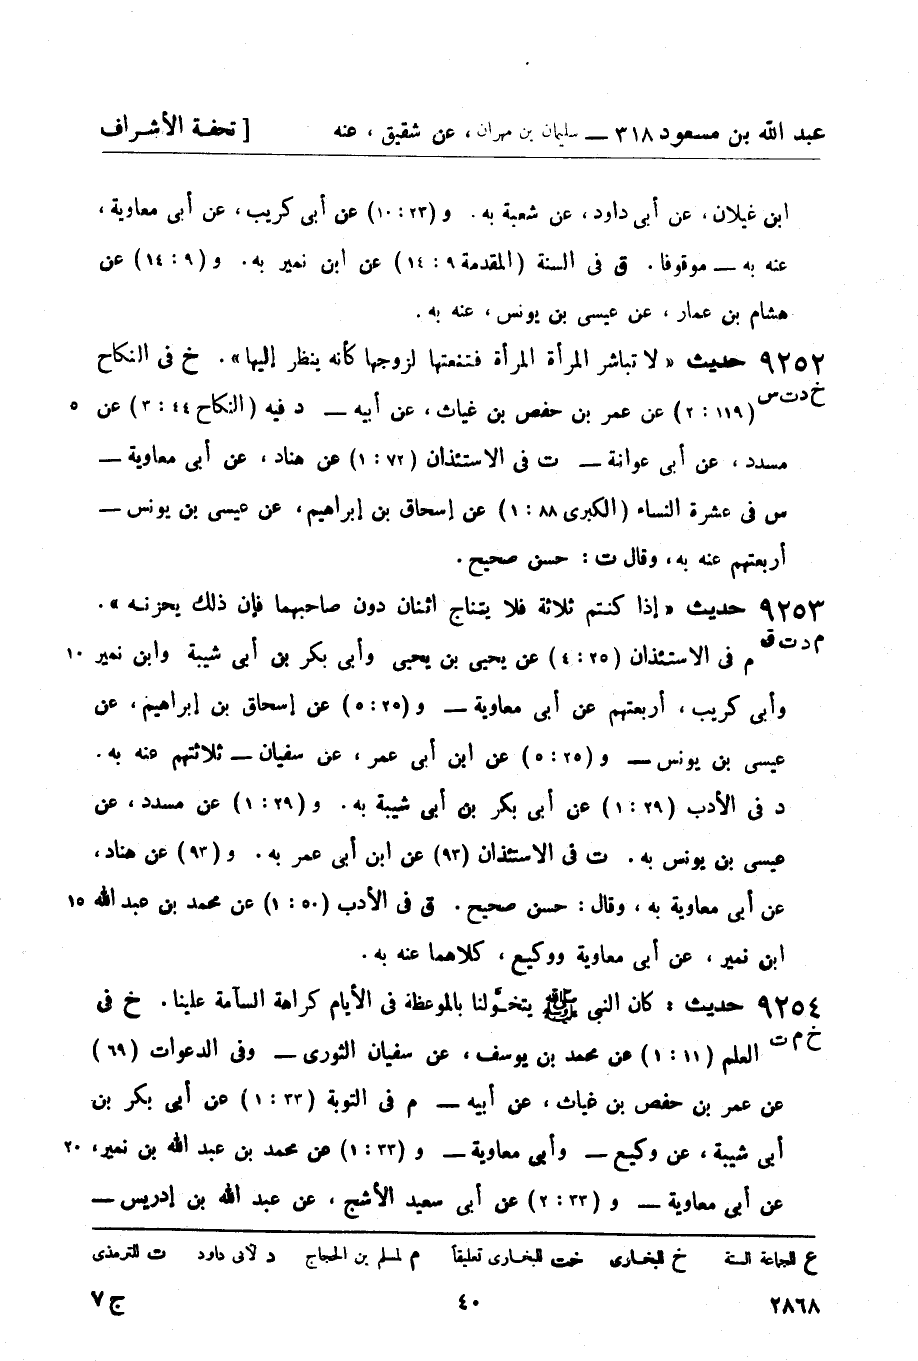 عبد الله بن مسعود ٣١٨ — سليمان بن مهران ، عن شقيق ، عنه [ تحفة الأشراف
ابن غيلان، عن أبي داود، عن شعبة به. و (٢٣ : ١٠) عن أبي كريب، عن أبي معاوية،
عنه به — موقوفا. ق في السنة (المقدمة ٩ : ١٤) عن ابن نمير به. و (٩ : ١٤) عن
هشام بن عمار ، عن عيسى بن يونس، عنه به.
٩٢٥٢ حديث « لا تباشر المرأة المرأة فتنعتها لزوجها كأنه ينظر إليها». خ في النكاح
خ د ت س (١١٩ : ٢) عن عمر بن حفص بن غياث، عن أبيه — د فيه (النكاح ٤٤ : ٣) عن ٥
مسدد، عن أبي عوانة — ت في الاستئذان (٧٢ : ١) عن هناد، عن أبي معاوية —
س في عشرة النساء (الكبرى ٨٨ : ١) عن إسحاق بن إبراهيم، عن عيسى بن يونس —
أربعتهم عنه به، وقال ت : حسن صحيح.
٩٢٥٣ حديث « إذا كنتم ثلاثة فلا يتناج اثنان دون صاحبهما فإن ذلك يحزنه».
م د ت ق م في الاستئذان (٢٥ : ٤) عن يحيى بن يحيى وأبي بكر بن أبي شيبة وابن نمير ١٠
وأبي كريب، أربعتهم عن أبي معاوية — و (٢٥ : ٥) عن إسحاق بن إبراهيم، عن
عيسى بن يونس — و (٢٥ : ٥) عن ابن أبي عمر، عن سفيان — ثلاثتهم عنه به.
د في الأدب (٢٩ : ١) عن أبي بكر بن أبي شيبة به. و (٢٩ : ١) عن مسدد، عن
عيسى بن يونس به. ت في الاستئذان (٩٣) عن ابن أبي عمر به. و (٩٣) عن هناد،
عن أبي معاوية به، وقال : حسن صحيح. ق في الأدب (٥٠ : ١) عن محمد بن عبد الله ١٥
ابن نمير، عن أبي معاوية ووكيع، كلاهما عنه به.
٩٢٥٤ حديث : كان النبي ﷺ يتخوَّلنا بالموعظة في الأيام كراهة السآمة علينا. خ في
خ م ت العلم (١١ : ١) عن محمد بن يوسف، عن سفيان الثوري — وفي الدعوات (٦٩)
عن عمر بن حفص بن غياث، عن أبيه — م في التوبة (٣٣ : ١) عن أبي بكر بن
أبي شيبة، عن وكيع — وأبي معاوية — و (٣٣ : ١) عن محمد بن عبد الله بن نمير، ٢٠
عن أبي معاوية — و (٣٣ : ٢) عن أبي سعيد الأشج، عن عبد الله بن إدريس —
ع للجماعة الستة خ للبخارى خت للبخارى تعليقاً م لمسلم بن الحجاج د لأبى داود ت للترمذى
٢٨٦٨ ٤٠ ج ٧